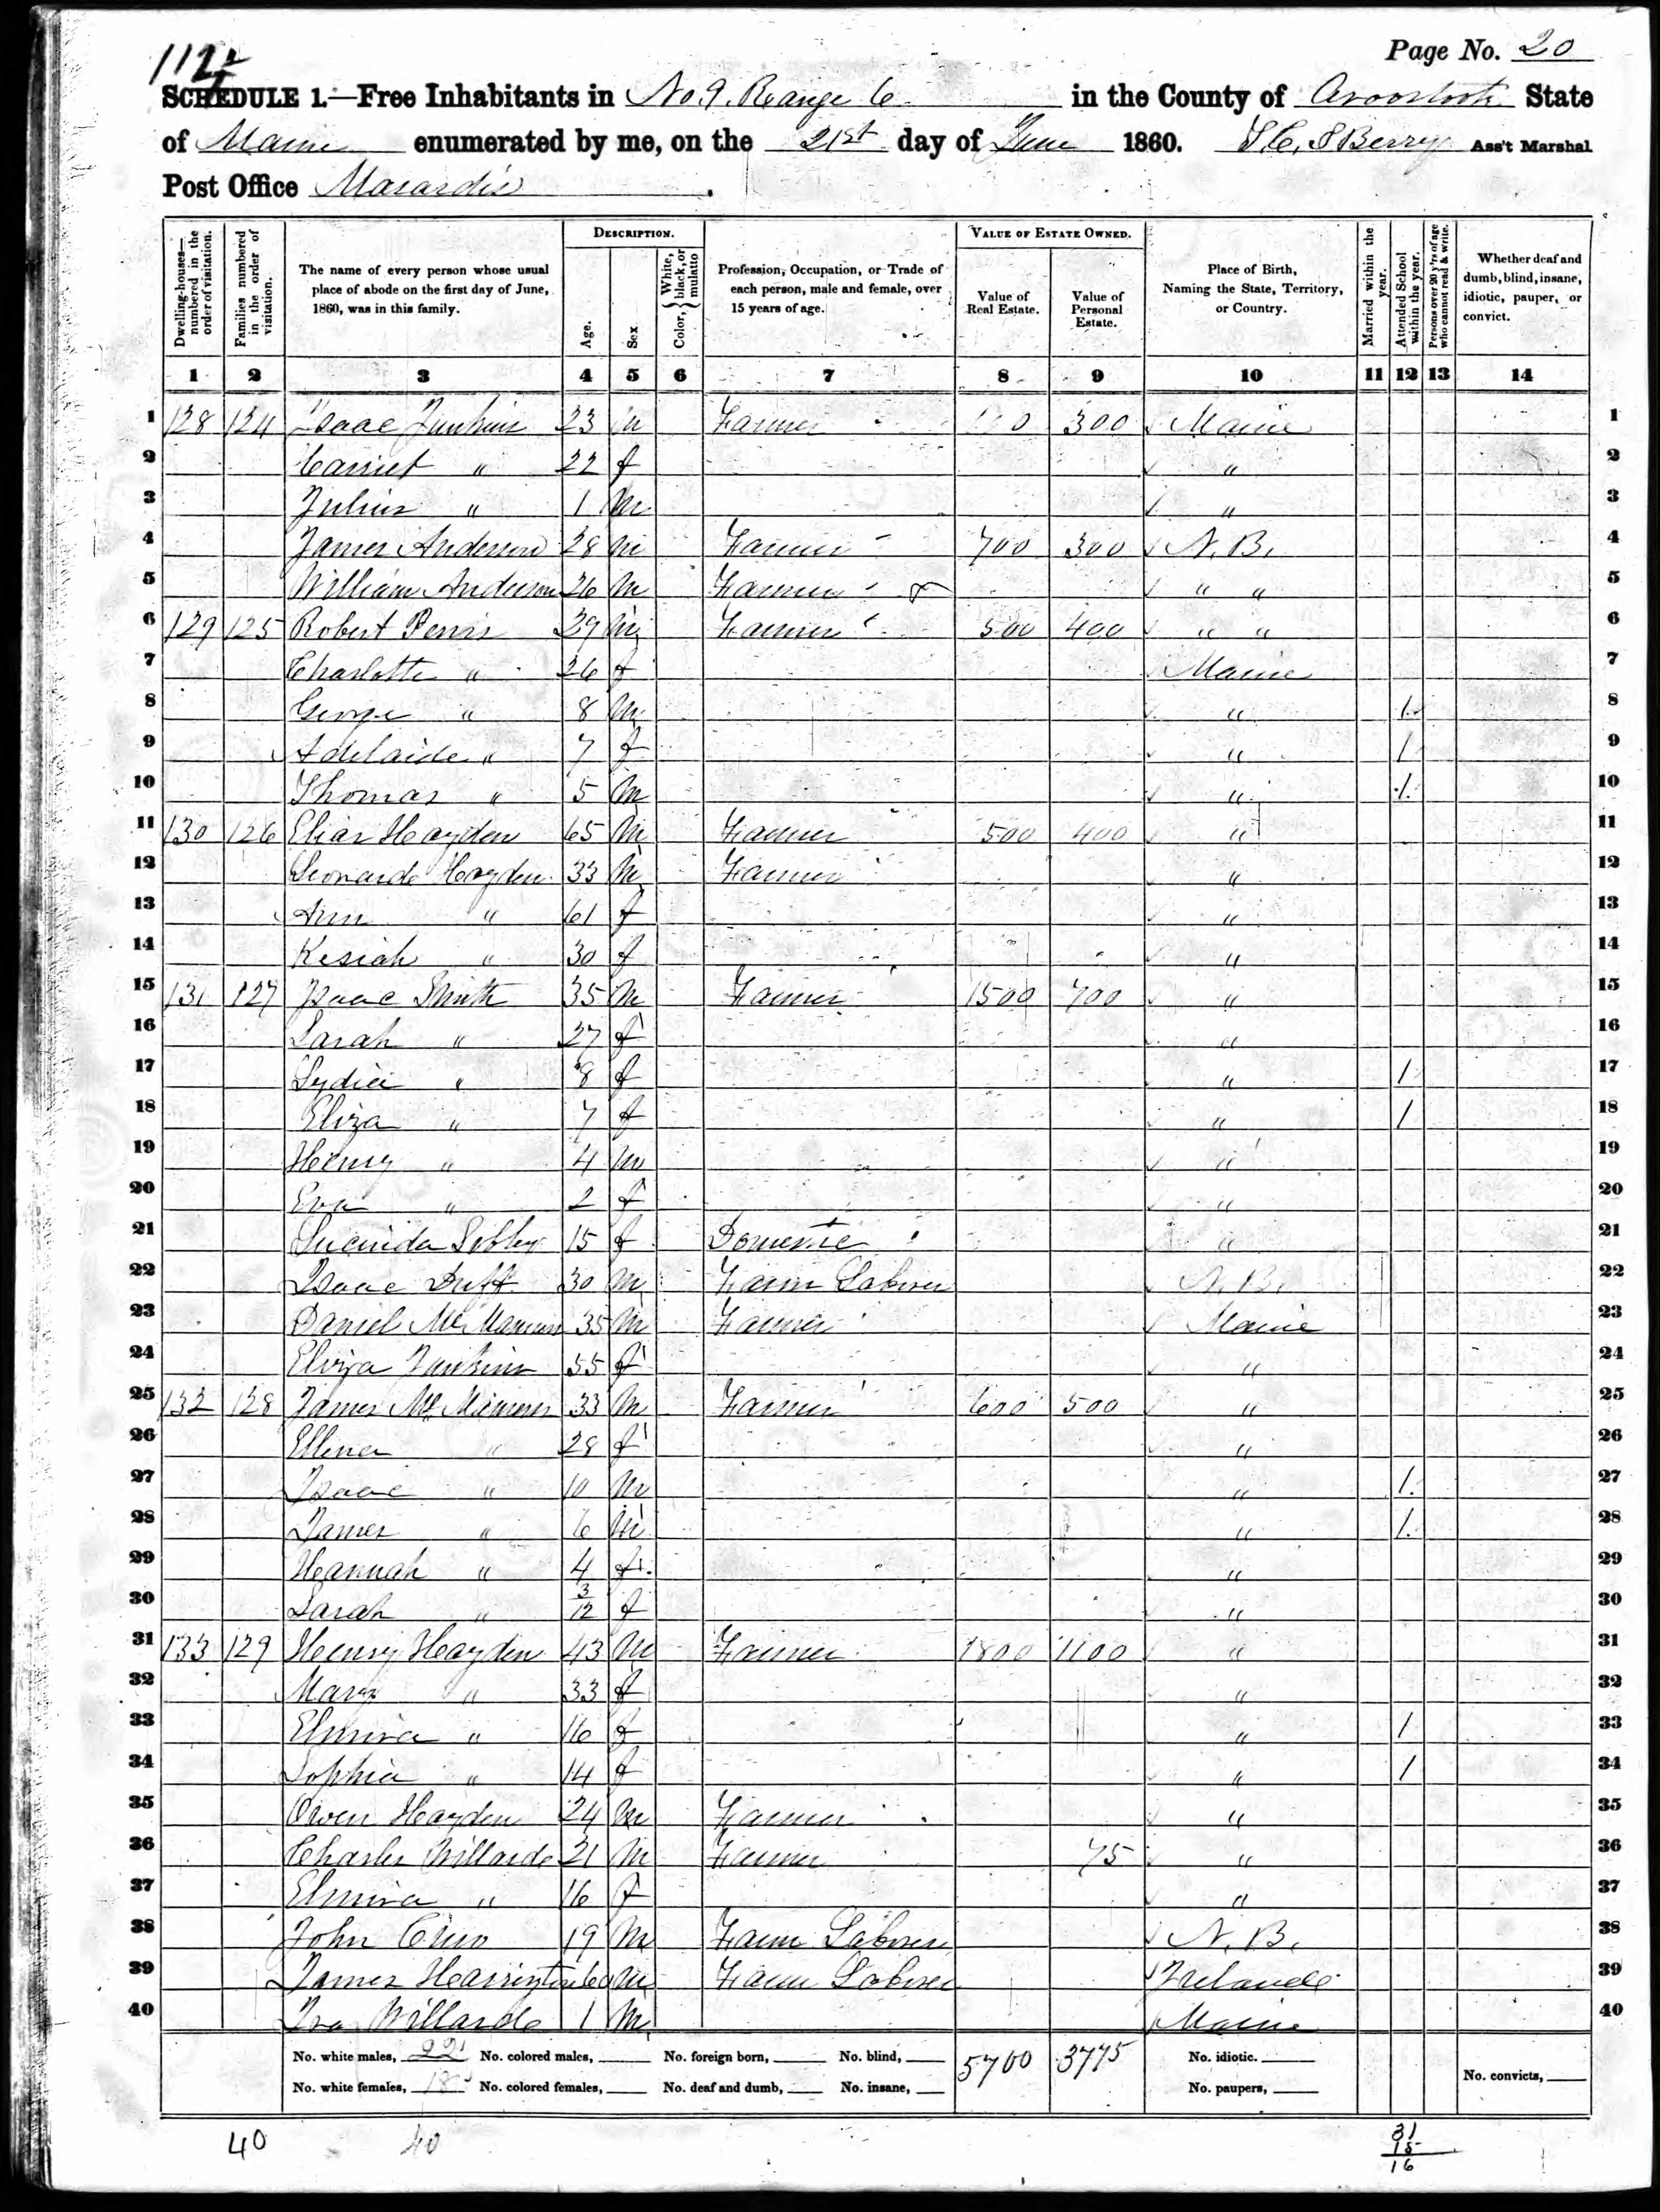 112
Page No. 20
SCHEDULE 1.—Free Inhabitants in No. 9. Range 6 in the County of Aroostook State
of Maine enumerated by me, on the 21st day of June 1860. Berry Ass't Marshal
Post Office Masardis.
DESCRIPTION. VALUE OF ESTATE OWNED.
Dwelling-houses—numbered in the order of visitation.
Families numbered in the order of visitation.
The name of every person whose usual place of abode on the first day of June, 1860, was in this family.
Age.
Sex
Color, { White, black, or mulatto
Profession, Occupation, or Trade of each person, male and female, over 15 years of age.
Value of Real Estate.
Value of Personal Estate.
Place of Birth, Naming the State, Territory, or Country.
Married within the year.
Attended School within the year.
Persons over 20 y'rs of age who cannot read & write.
Whether deaf and dumb, blind, insane, idiotic, pauper, or convict.
1 2 3 4 5 6 7 8 9 10 11 12 13 14
1 128 124 Isaac Junkins 23 m Farmer 300 Maine 1
2 Harriet " 22 f " 2
3 Julius " 1 m " 3
4 James Anderson 28 m Farmer 700 300 N. B. 4
5 William Anderson 26 m Farmer " " 5
6 129 125 Robert 29 m Farmer 500 400 " " 6
7 Charlotte " 26 f Maine 7
8 George " 8 m " 1 8
9 Adelaide " 7 f " 1 9
10 Thomas " 5 m " 1 10
11 130 126 Elias Hayden 65 m Farmer 500 400 " 11
12 Leonard Hayden 33 m Farmer " 12
13 Ann " 61 f " 13
14 Kesiah " 30 f " 14
15 131 127 Isaac Smith 35 m Farmer 1500 700 " 15
16 Sarah " 27 f " 16
17 Lydia " 8 f " 1 17
18 Eliza " 7 f " 1 18
19 Henry " 4 m " 19
20 Eva " 2 f " 20
21 Lucinda 15 f Domestic " 21
22 Isaac Duff 30 m Farm Laborer N. B. 22
23 Daniel McManus 35 m Farmer Maine 23
24 Junkins 55 f " 24
25 132 128 James 33 m Farmer 600 500 " 25
26 Ellena " 28 f " 26
27 Isaac " 10 m " 1 27
28 James " 6 m " 1 28
29 Hannah " 4 f " 29
30 Sarah " 3/12 f " 30
31 133 129 Henry Hayden 43 m Farmer 1800 1100 " 31
32 Mary " 33 f " 32
33 Elmira " 16 f " 1 33
34 Sophia " 14 f " 1 34
35 Owen Hayden 24 m Farmer " 35
36 Charles Willard 21 m Farmer 75 " 36
37 Elmira " 16 f " 37
38 John 19 m Farm Laborer N. B. 38
39 James Harrington 60 m Farm Laborer Ireland 39
40 Ira Willard 1 m Maine 40
No. white males, 22 No. colored males, No. foreign born, No. blind, 5700 3775 No. idiotic.
No. white females, 18 No. colored females, No. deaf and dumb, No. insane, No. paupers, No. convicts,
40 40 31
15
16